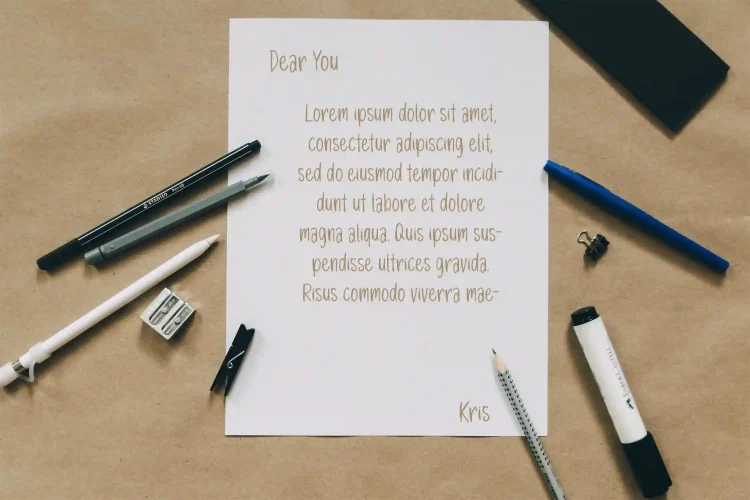 Dear You
Lorem ipsum dolor sit amet,
consectetur adipiscing elit,
sed do eiusmod tempor incidi-
dunt ut labore et dolore
magna aliqua. Quis ipsum sus-
pendisse ultrices gravida.
Risus commodo viverra mae-
Kris
STABILO